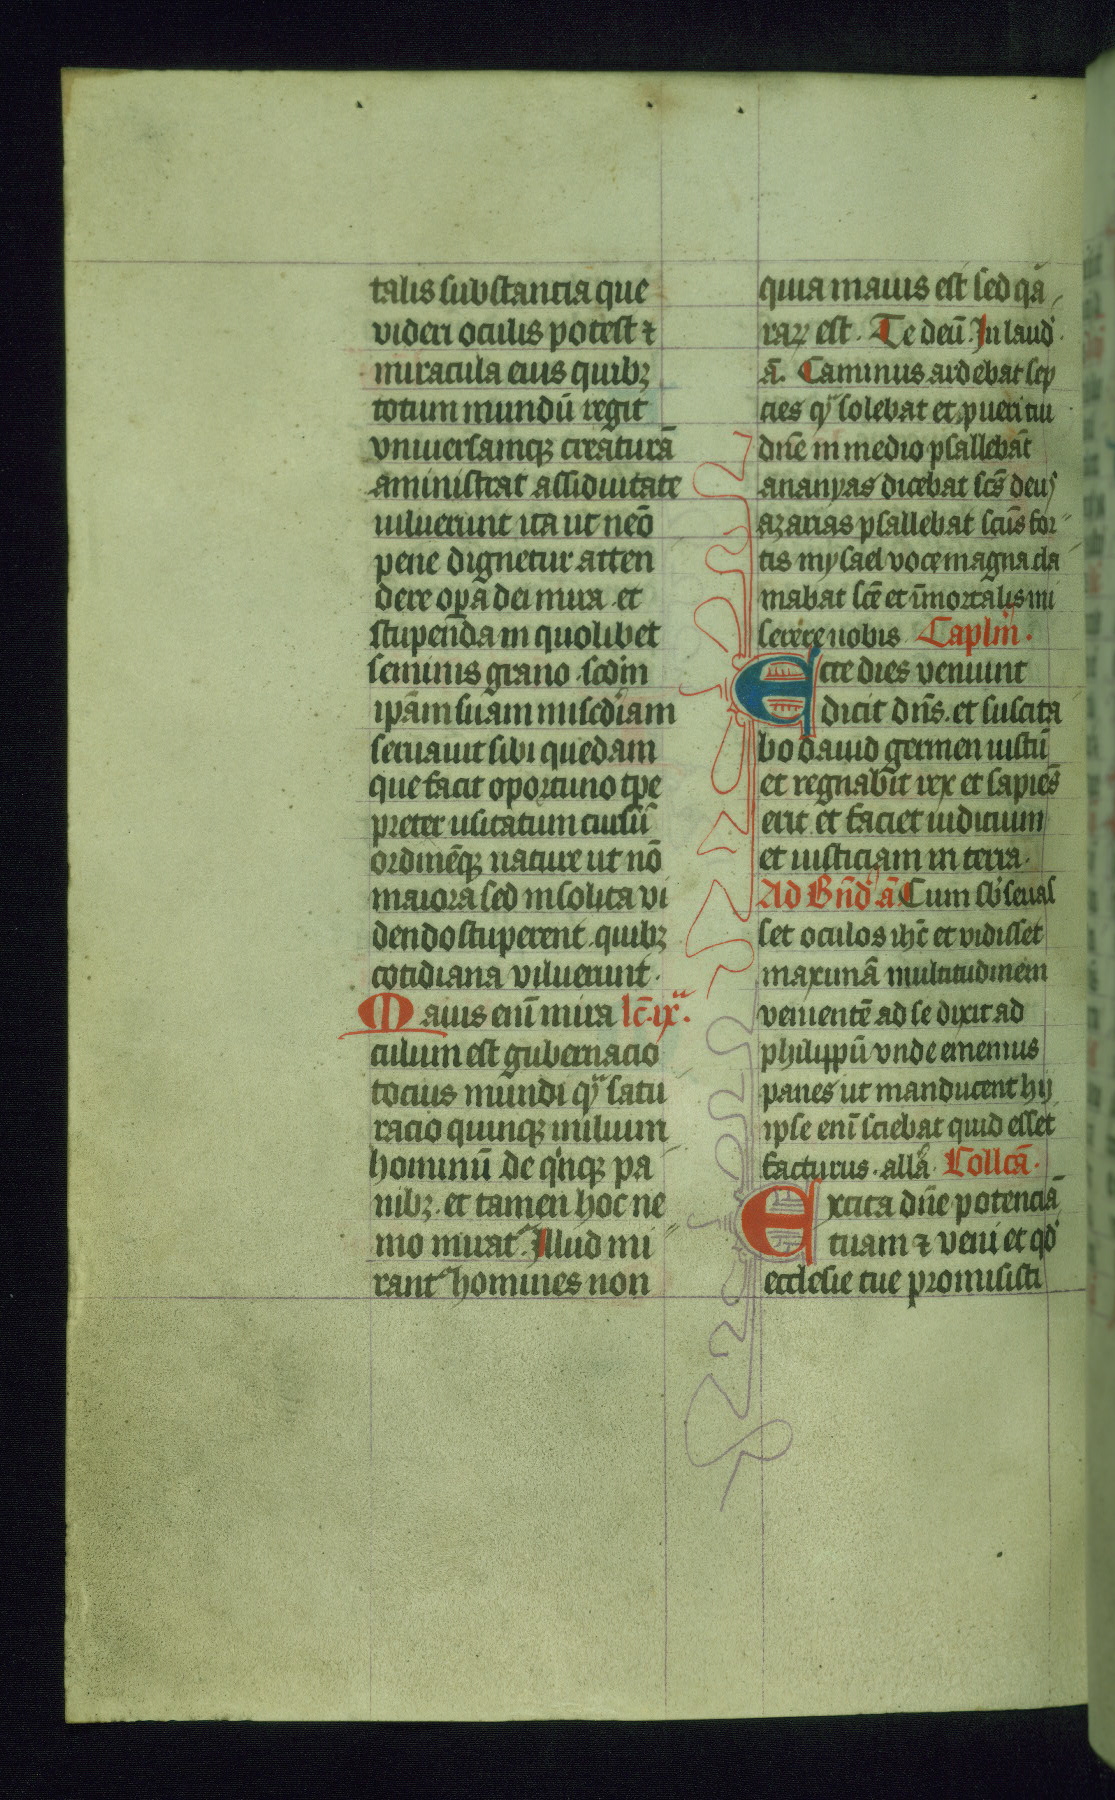 talis substantia que
videri oculis potest ⁊
miracula eius quibꝫ
totum mundū regit
vniuersamqꝫ creaturā
aministrat assiduitate
uiluerunt ita ut neō
pene dignetur atten
dere oꝑa dei mira et
stupenda in quolibet
seminis grano scdm
ipām suam miscdiam
seruauit sibi quedam
que facit oportuno tpe
preter usitatum cursū
ordinēqꝫ nature ut nō
maiora sed insolita vi
dendo stuperent quibꝫ
cotidiana viluerunt.
Maius enī mira lc̄. ix.
culum est gubernacio
tocius mundi qͣ satu
racio quinqꝫ milium
hominū de qͥnqꝫ pa
nibꝫ. et tamen hoc ne
mo mirat᷑. Illud mi
rant᷑ homines non
quia maius est sed qa
raꝝ est. Te deū. In laud.
ā. Caminus ardebat sep
cies qͣ solebat et pueri tui
dn̄e in medio psallebāt
ananyas dicebat scs̄ deus
azarias psallebat scūs for
tis mysael voce magna cla
mabat scē et īmortalis mi
serere nobis Caplm̄.
Ecce dies veniunt
dicit dn̄s. et suscita
bo dauid germen iustū
et regnabit rex et sapiēs
erit et faciet iudicium
et iusticiam in terra.
Ad Bn̄d ā Cum sb̓leuas
set oculos ih̄c et vidisset
maximā multitudinem
venientē ad se dixit ad
philippū vnde ememus
panes ut manducent hij
ipse enī sciebat quid esset
facturus. allā. Collcā.
Excita dn̄e potenciā
tuam ⁊ veni et qd̓
ecclesie tue promisisti